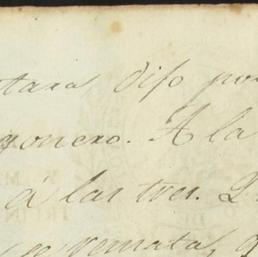 tara dijo por
gonero. A la
á las tres.
se remata,